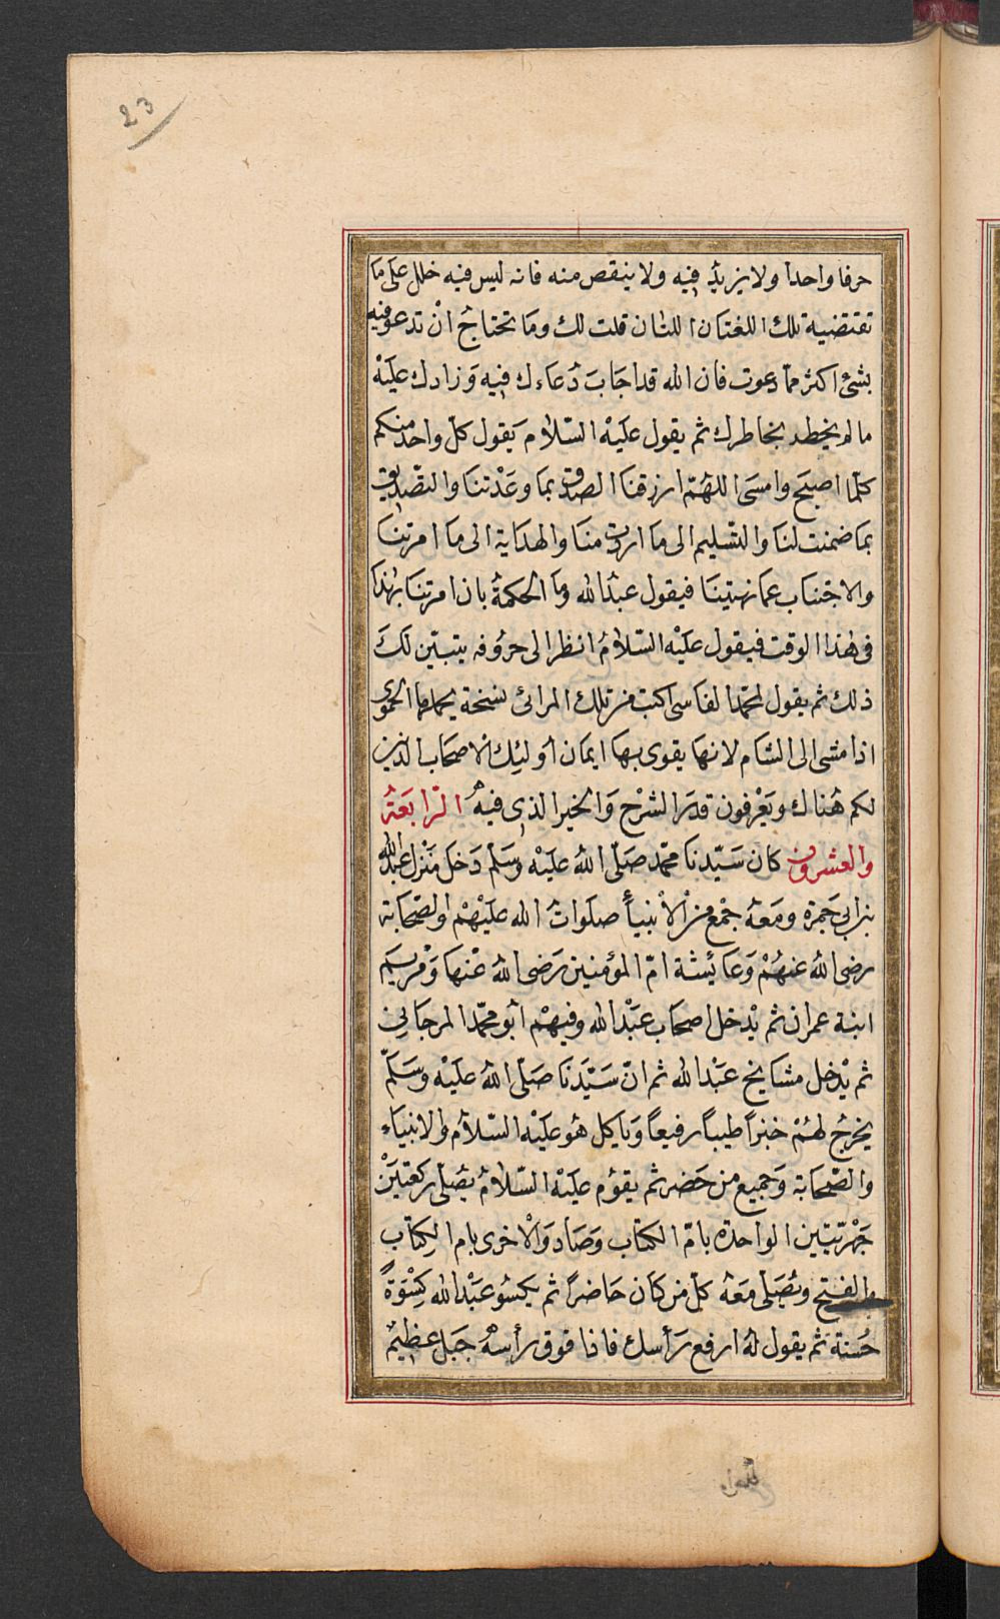 23
حرفا واحدا ولا يزيد فيه ولا ينقص منه فانه ليس فيه خلل على ما
تقتضيه تلك اللغتان اللتان قلت لك وما تحتاج ان تدعو فيه
بشئ اكثر مما دعوت فان الله قد اجاب دعاءك فيه وزادك عليه
ما لم يخطر بخاطرك ثم يقول عليه السلام يقول كل واحد منكم
كلما اصبح وامسى اللهم ارزقنا الصدق بما وعدتنا والتصديق
بما ضمنت لنا والتسليم الى ما اردت منا والهداية الى ما امرتنا
والاجتناب عما نهيتنا فيقول عبد الله وما الحكمة بان امرتنا بهذا
فى هذا الوقت فيقول عليه السلام انظر الى حروفه يتبين لك
ذلك ثم يقول لمحمد الفاسى اكتب من تلك المرائى نسخة يحملها الحموى
اذا مشى الى الشام لانها يقوى بها ايمان اوليك الاصحاب الذين
لكم هناك ويعرفون قدر الشرح والخير الذى فيه الرابعة
والعشرون كان سيدنا محمد صلى الله عليه وسلم دخل منزل عبد الله
بن ابى جمرة ومعه جمع من الانبياء صلوات الله عليهم والصحابة
رضى الله عنهم وعائشة ام المؤمنين رضى الله عنها ومريم
ابنة عمران ثم يدخل اصحاب عبد الله وفيهم ابو محمد المرجانى
ثم يدخل مشايخ عبد الله ثم ان سيدنا صلى الله عليه وسلم
يخرج لهم خبزا طيبا رفيعا وياكل هو عليه السلام والانبياء
والصحابة وجميع من حضر ثم يقوم عليه السلام يصلى ركعتين
جهريتين الواحدة بام الكتاب وصاد والاخرى بام الكتاب
والفتح وتصلى معه كل من كان حاضرا ثم يكسو عبد الله كسوة
حسنة ثم يقول له ارفع رأسك فاذا فوق رأسه جبل عظيم